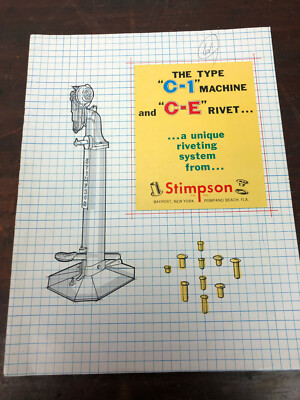 THE TYPE
"C-1" MACHINE
and "C-E" RIVET...
...a unique
riveting
system
from...
Stimpson
BAYPORT, NEW YORK POMPANO BEACH, FLA.